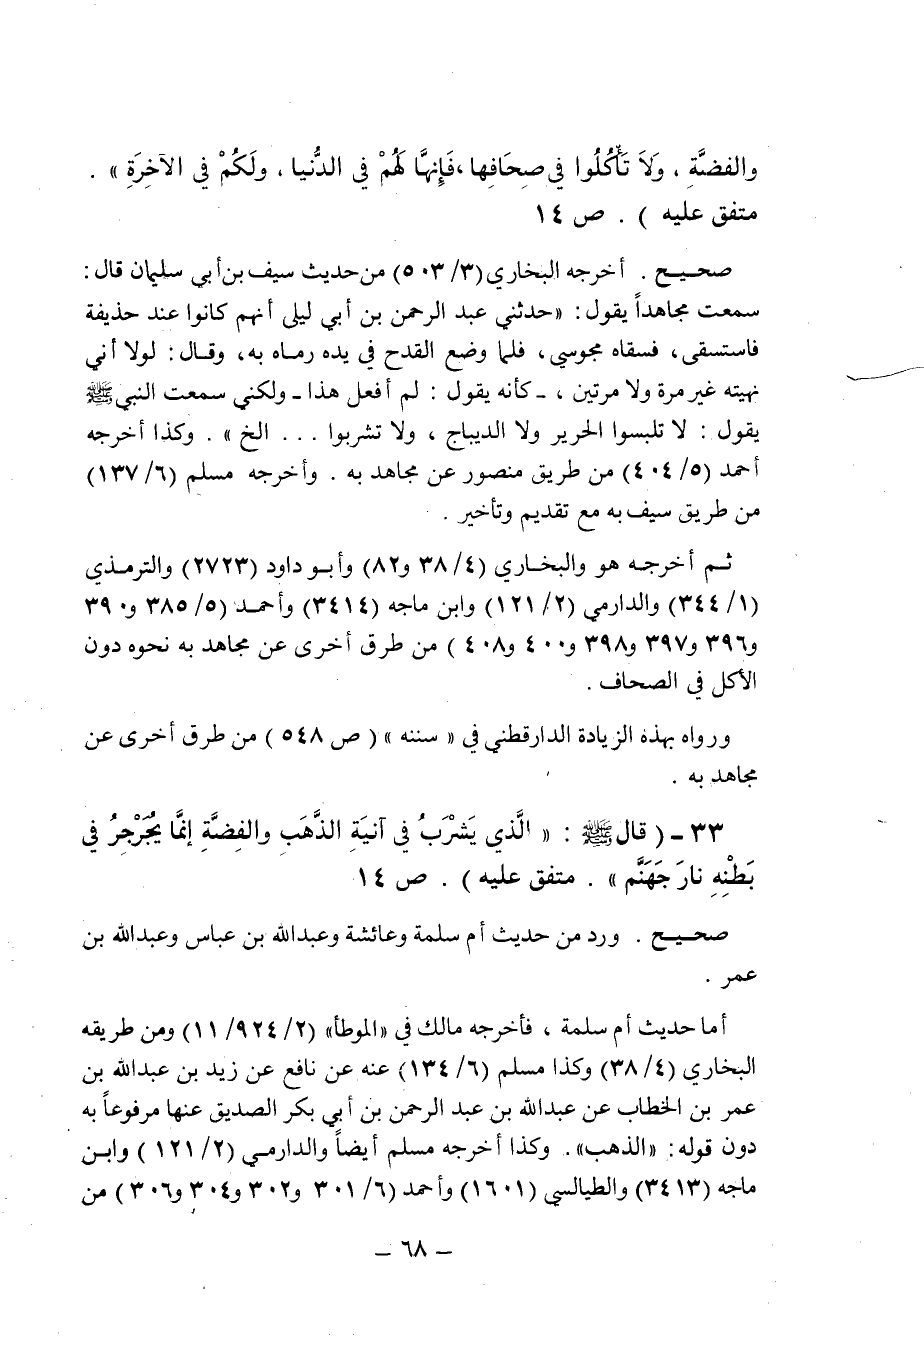 والفضَّةِ ، وَلاَ تَأْكُلُوا فِي صِحَافِها ، فَإِنهَّا لَهُمْ فِي الدُّنيا ، ولَكُمْ فِي الآخِرَةِ » .
متفق عليه ) . ص ١٤
صحيح . أخرجه البخاري (٣/ ٥٠٣) من حديث سيف بن أبي سليمان قال :
سمعت مجاهداً يقول : «حدثني عبد الرحمن بن أبي ليلى أنهم كانوا عند حذيفة
فاستسقى ، فسقاه مجوسي ، فلما وضع القدح في يده رماه به ، وقال : لولا أني
نهيته غير مرة ولا مرتين ، ـ كأنه يقول : لم أفعل هذا ـ ولكني سمعت النبي ﷺ
يقول : لا تلبسوا الحرير ولا الديباج ، ولا تشربوا . . . الخ » . وكذا أخرجه
أحمد (٥/ ٤٠٤) من طريق منصور عن مجاهد به . وأخرجه مسلم (٦/ ١٣٧)
من طريق سيف به مع تقديم وتأخير .
ثم أخرجه هو والبخاري (٤/ ٣٨ و٨٢) وأبو داود (٢٧٢٣) والترمذي
(١/ ٣٤٤) والدارمي (٢/ ١٢١) وابن ماجه (٣٤١٤) وأحمد (٥/ ٣٨٥ و٣٩٠
و٣٩٦ و٣٩٧ و٣٩٨ و٤٠٠ و٤٠٨ ) من طرق أخرى عن مجاهد به نحوه دون
الأكل في الصحاف .
ورواه بهذه الزيادة الدارقطني في « سننه » ( ص ٥٤٨ ) من طرق أخرى عن
مجاهد به .
٣٣ ـ ( قال ﷺ : « الَّذي يَشْرَبُ في آنيَةِ الذَّهَبِ والفِضَّةِ إنمَّا يُجَرْجِرُ فِي
بَطْنِهِ نارَ جَهَنَّم » . متفق عليه ) . ص ١٤
صحيح . ورد من حديث أم سلمة وعائشة وعبدالله بن عباس وعبدالله بن
عمر .
أما حديث أم سلمة ، فأخرجه مالك في «الموطأ» (٢/ ٩٢٤/ ١١) ومن طريقه
البخاري (٤/ ٣٨) وكذا مسلم (٦/ ١٣٤) عنه عن نافع عن زيد بن عبدالله بن
عمر بن الخطاب عن عبدالله بن عبد الرحمن بن أبي بكر الصديق عنها مرفوعاً به
دون قوله : «الذهب» . وكذا أخرجه مسلم أيضاً والدارمي (٢/ ١٢١ ) وابن
ماجه (٣٤١٣) والطيالسي (١٦٠١) وأحمد (٦/ ٣٠١ و٣٠٢ و٣٠٤ و٣٠٦ ) من
ـ ٦٨ ـ